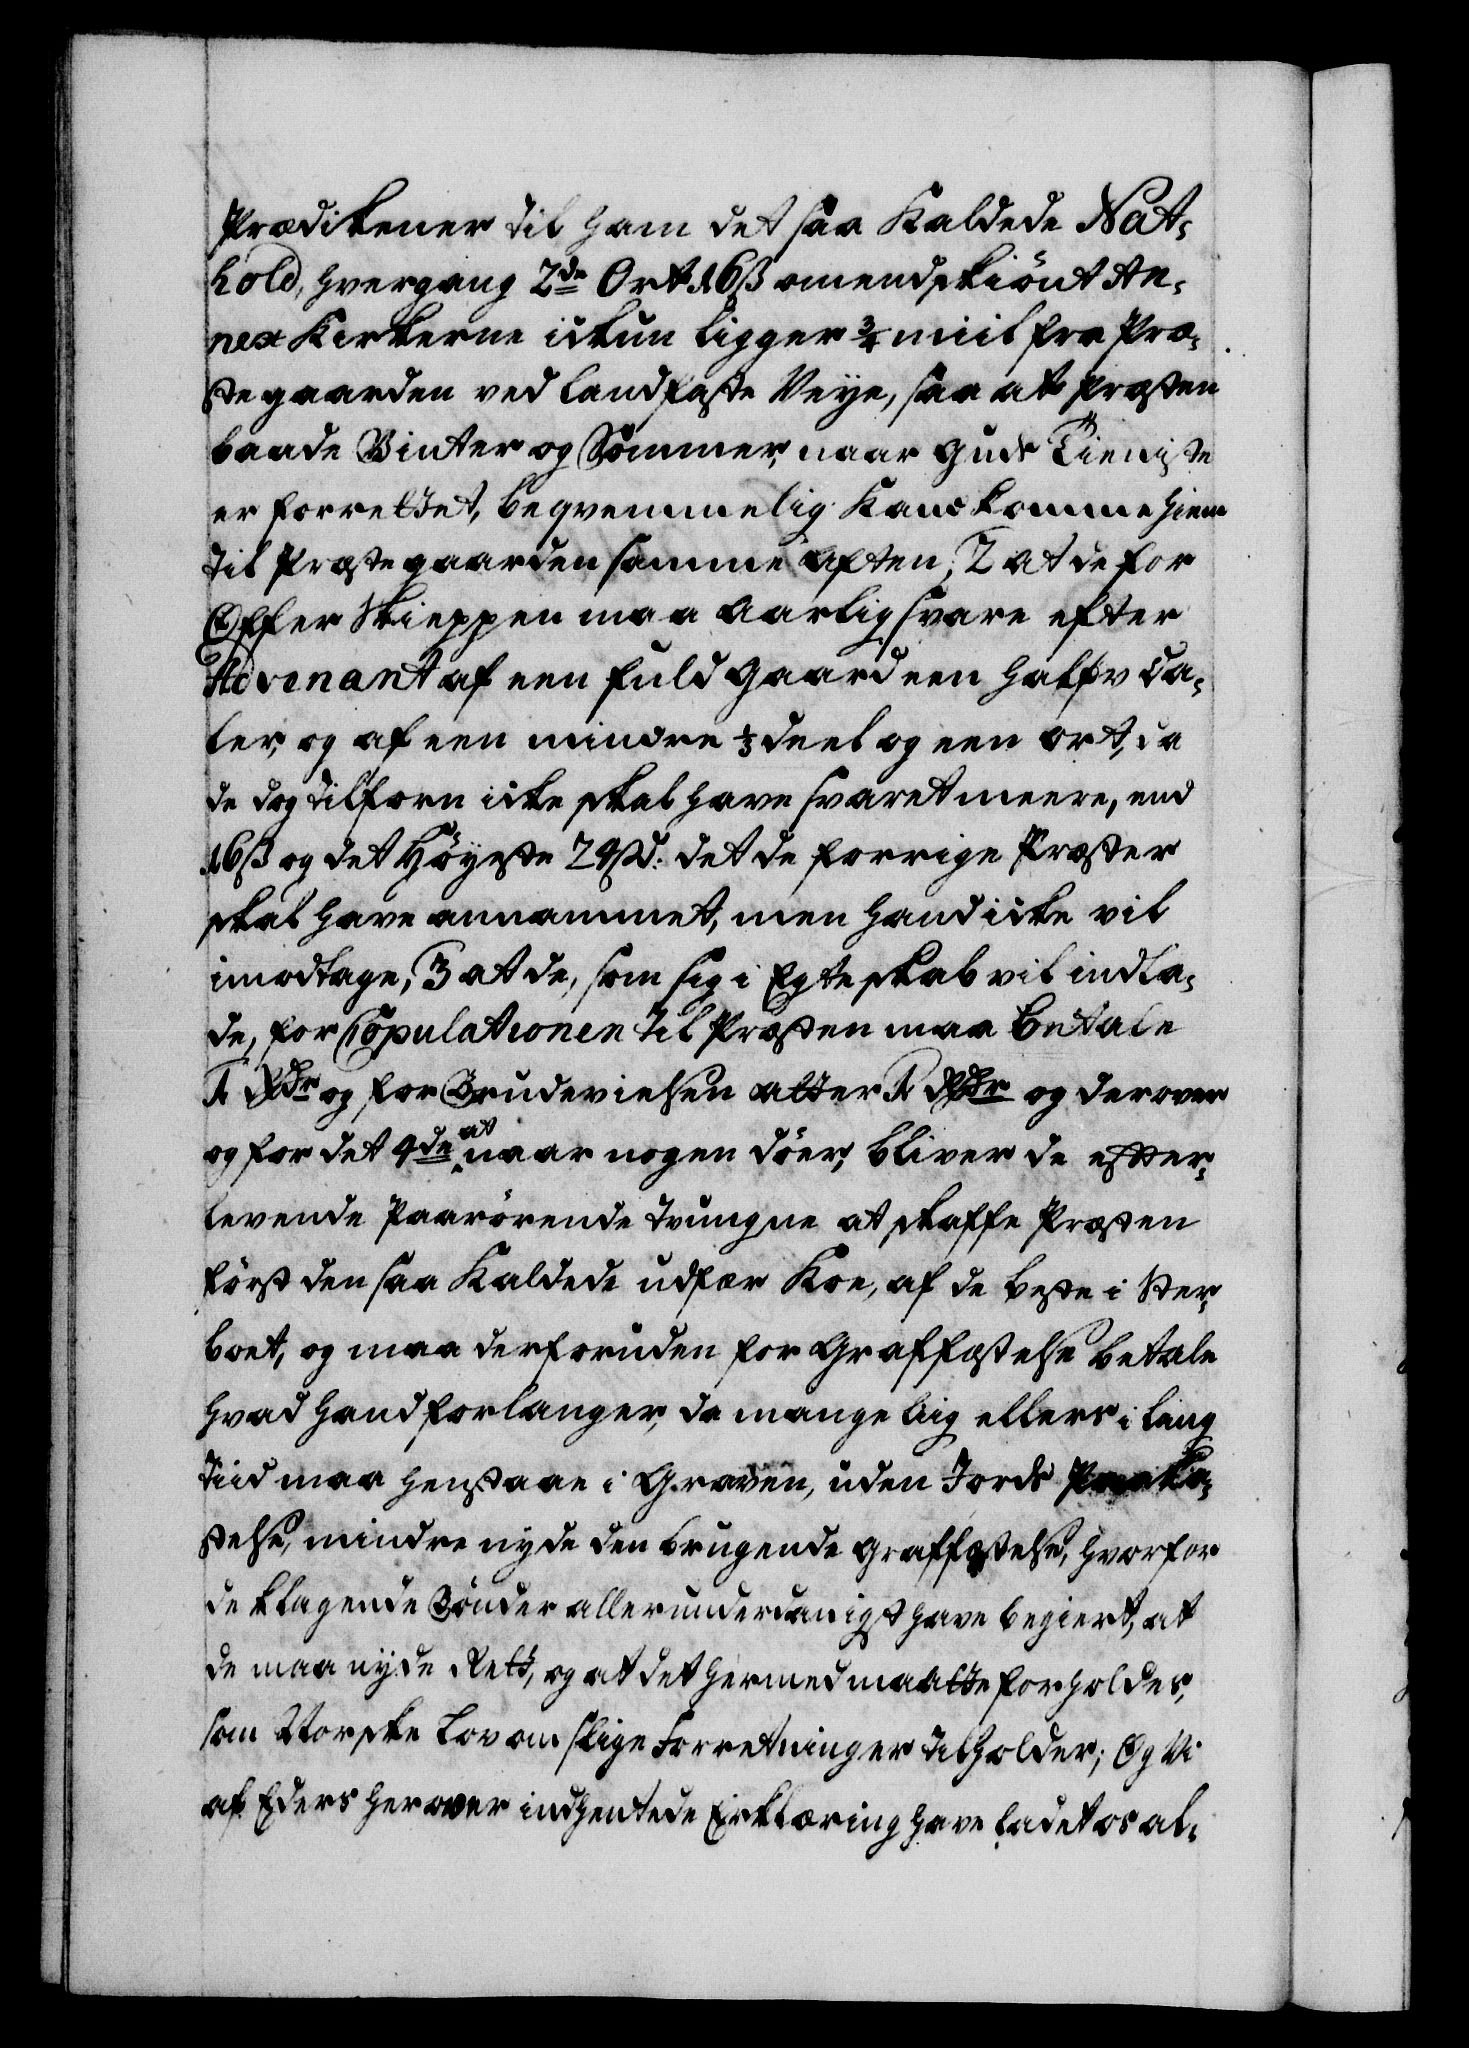 Prædikener til ham det saa kaldede Nat-
hold, hvergang 2de Ort 16ß omendskiönt An-
nex Kirkerne ickun ligger 3/4 miil fra Præ-
stegaarden ved landfaste Veye, saa at Præsten
baade Vinter og Sommer, naar Guds Tieniste
er forrettet, beqvemmelig kand komme hiem
til Præstegaarden samme Aften, 2 at de for
Offer Skieppen maa aarlig svare efter
Advenant af een fuld Gaard een halfv da-
ler, og af een mindre 1/3 deel og een ort, da
de dog tilforn icke skal have svaret meere, end
16ß og det Høyeste 24ßd: det de forrige Præster
skal have annammet, men hand icke vil
imodtage, 3 at de, som sig i Egteskab vil indla-
de, for Copulationen til Præsten maa betale
1 Rdr og for Brudevielsen atter 1 Rdr og derover
og for det 4de at naar nogen döer, bliver de efter-
levende Paarörende tvungne at skaffe Præsten
först den saa kaldede udfær Koe, af de beste i Ster-
boet, og maa derforuden for Graffæstelse betale
hvad hand forlanger, da mange liig ellers i lang
Tiid maa henstaae i Graven, uden Jords Paaka-
stelse, mindre nyde den brugende Graffæstelse, hvorfor
de klagende Bönder allerunderdanigst have begiert, at
de maa nyde Rett, og at det hermed maatte forholdes,
som Norske Lov om slige Forretninger tilholder; Og Vi
af Eders herover indhentede Erklæring have ladet os al-